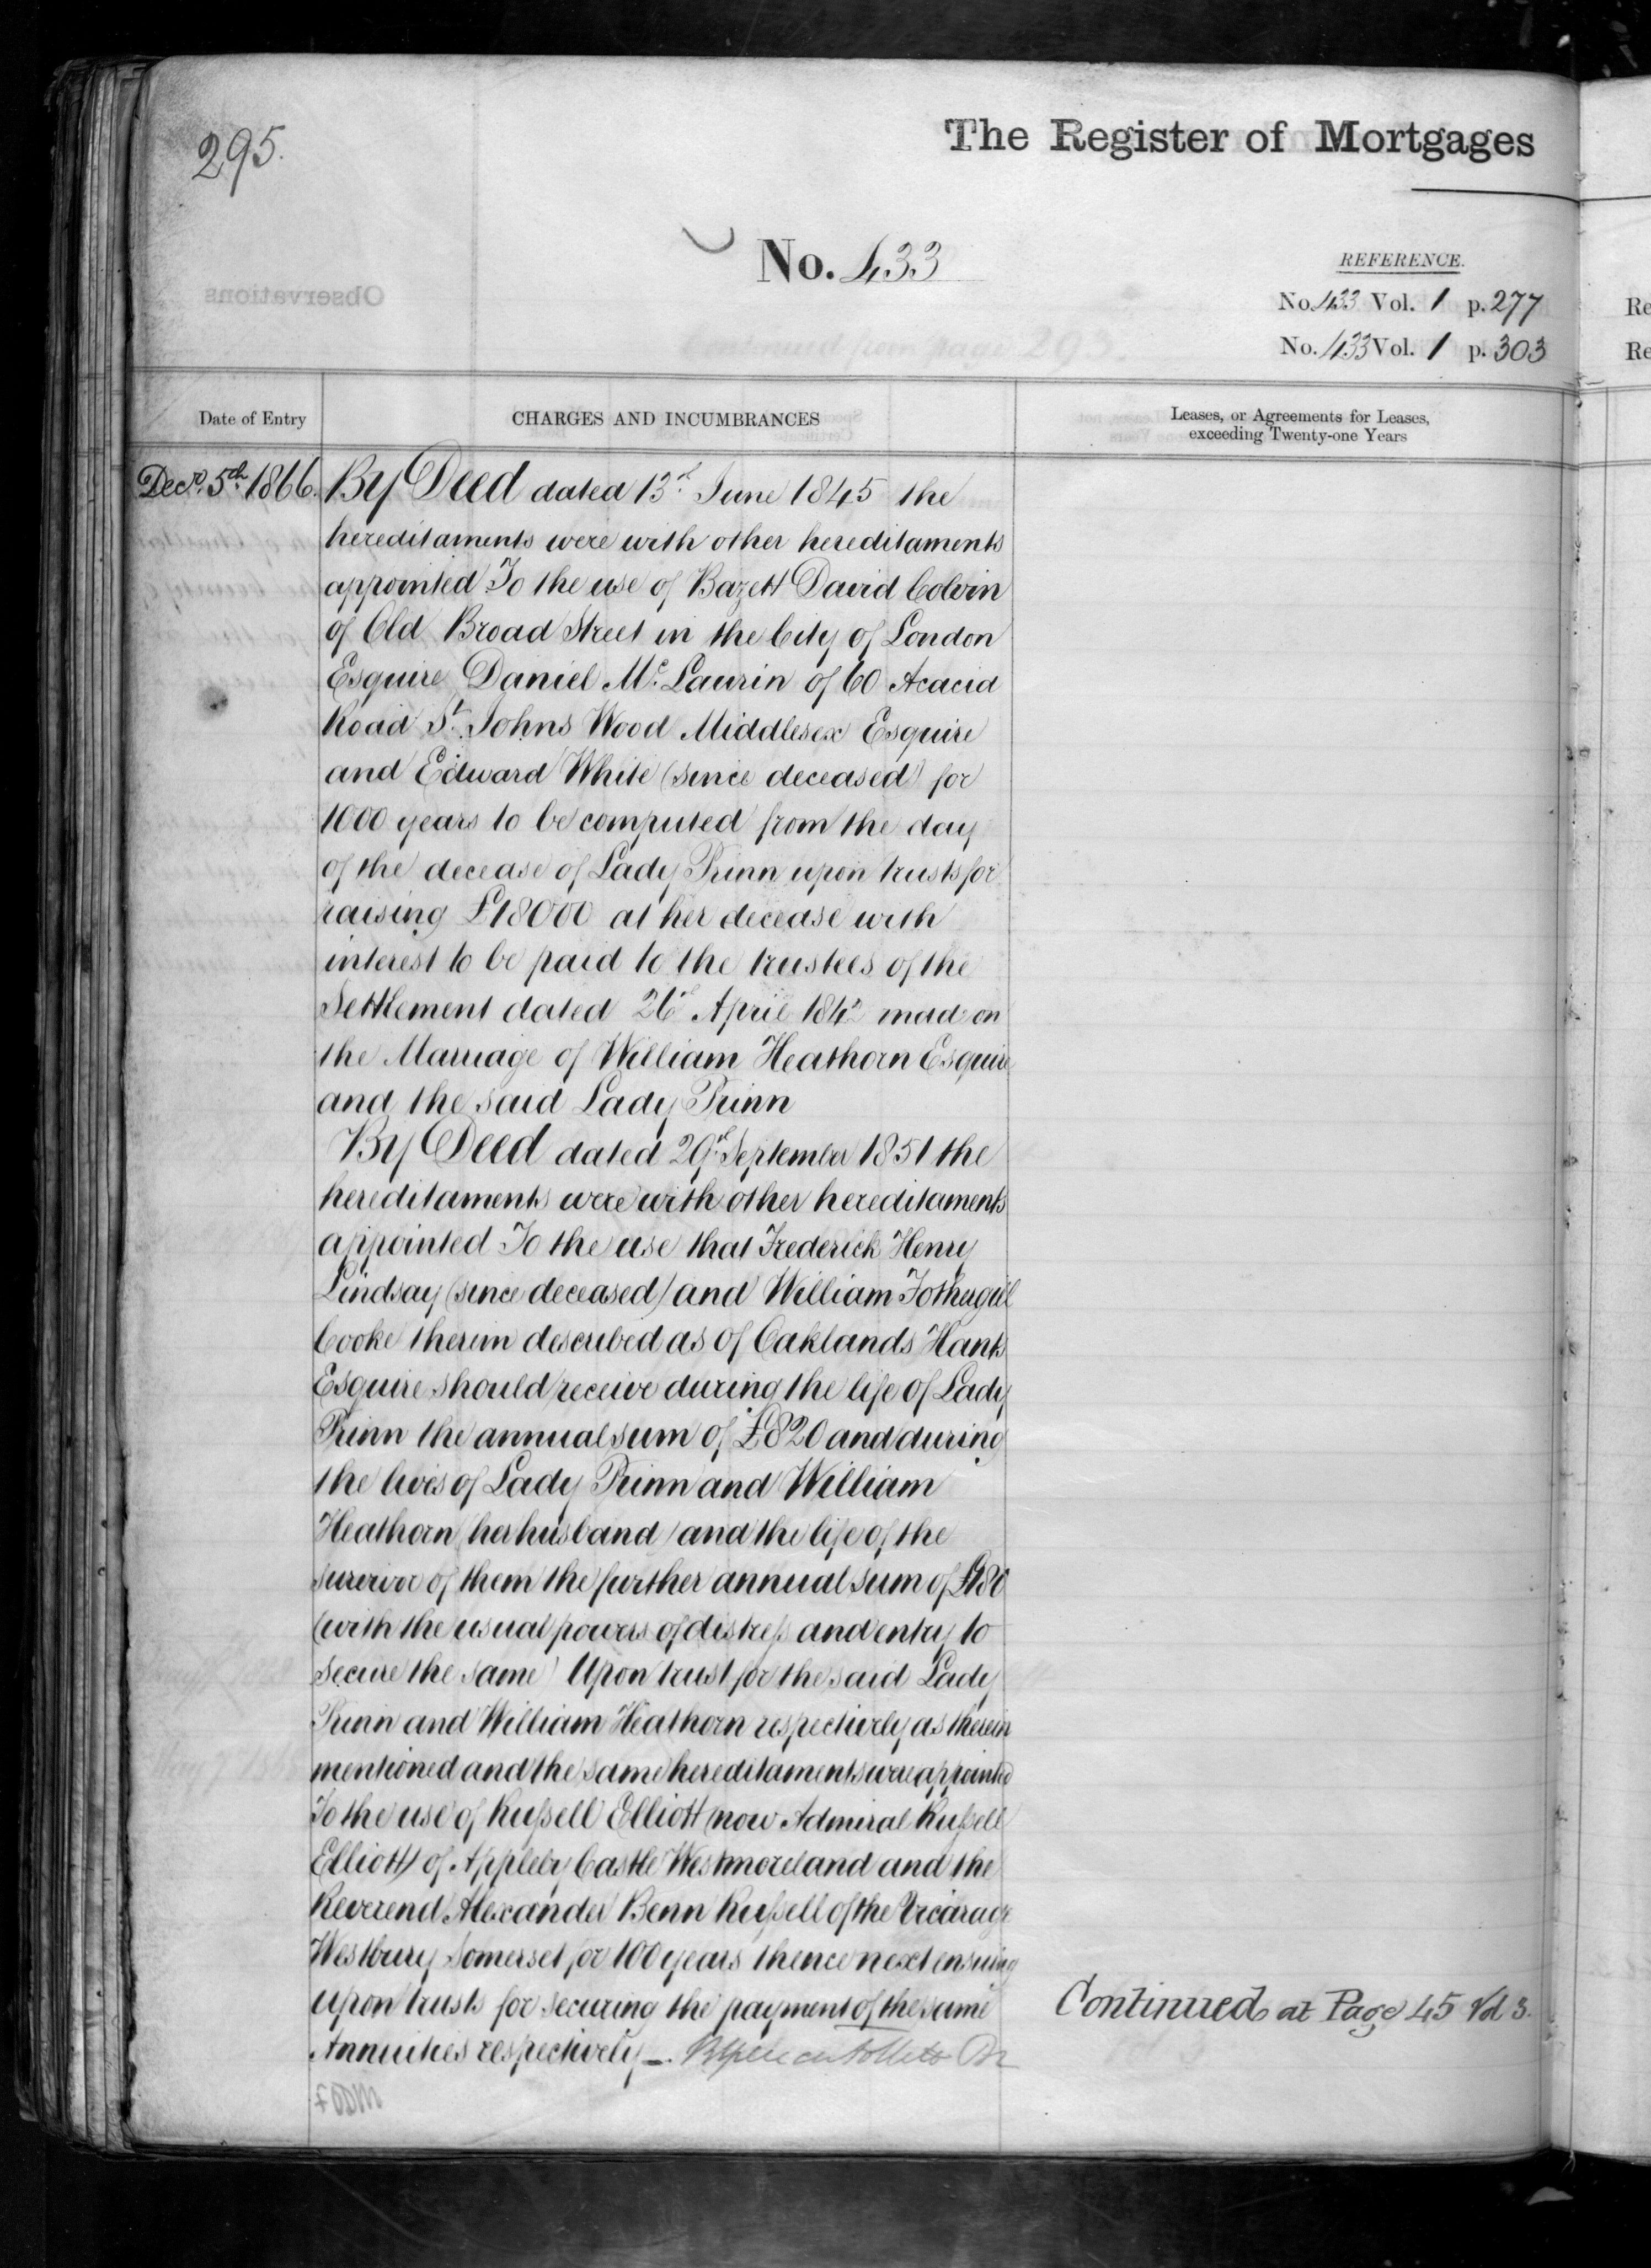 295.
The Register of Mortgages
No. 433
REFERENCE.
No. 433 Vol. 1 p. 277
No. 433 Vol. 1 p. 303
Date of Entry
CHARGES AND INCUMBRANCES
Leases, or Agreements for Leases,
exceeding Twenty-one Years
Decr. 5th 1866.
By Deed dated 13th June 1845 the
hereditaments were with other hereditaments
appointed To the use of Bazett David Colvin
of Old Broad Street in the City of London
Esquire Daniel Mc. Laurin of 60 Acacia
Road St. Johns Wood Middlesex Esquire
and Edward White (since deceased) for
1000 years to be computed from the day
of the decease of Lady Prinn upon trusts for
raising £18000 at her decease with
interest to be paid to the trustees of the
Settlement dated 26th April 1842 made on
the Marriage of William Heathorn Esquire
and the said Lady Prinn
By Deed dated 29th September 1851 the
hereditaments were with other hereditaments
appointed To the use that Frederick Henry
Lindsay (since deceased) and William Fothergill
Cooke therein described as of Oaklands Hants
Esquire should receive during the life of Lady
Prinn the annual sum of £820 and during
the lives of Lady Prinn and William
Heathorn (her husband) and the life of the
survivor of them the further annual sum of £180
(with the usual powers of distress and entry to
secure the same) Upon trust for the said Lady
Prinn and William Heathorn respectively as therein
mentioned and the same hereditaments were appointed
To the use of Russell Elliott (now Admiral Russell
Elliott) of Appleby Castle Westmoreland and the
Reverend Alexander Benn Russell of the Vicarage
Westbury Somerset for 100 years thence next ensuing
upon trusts for securing the payment of the same
Annuities respectively _.
Continued at Page 45 Vol 3.